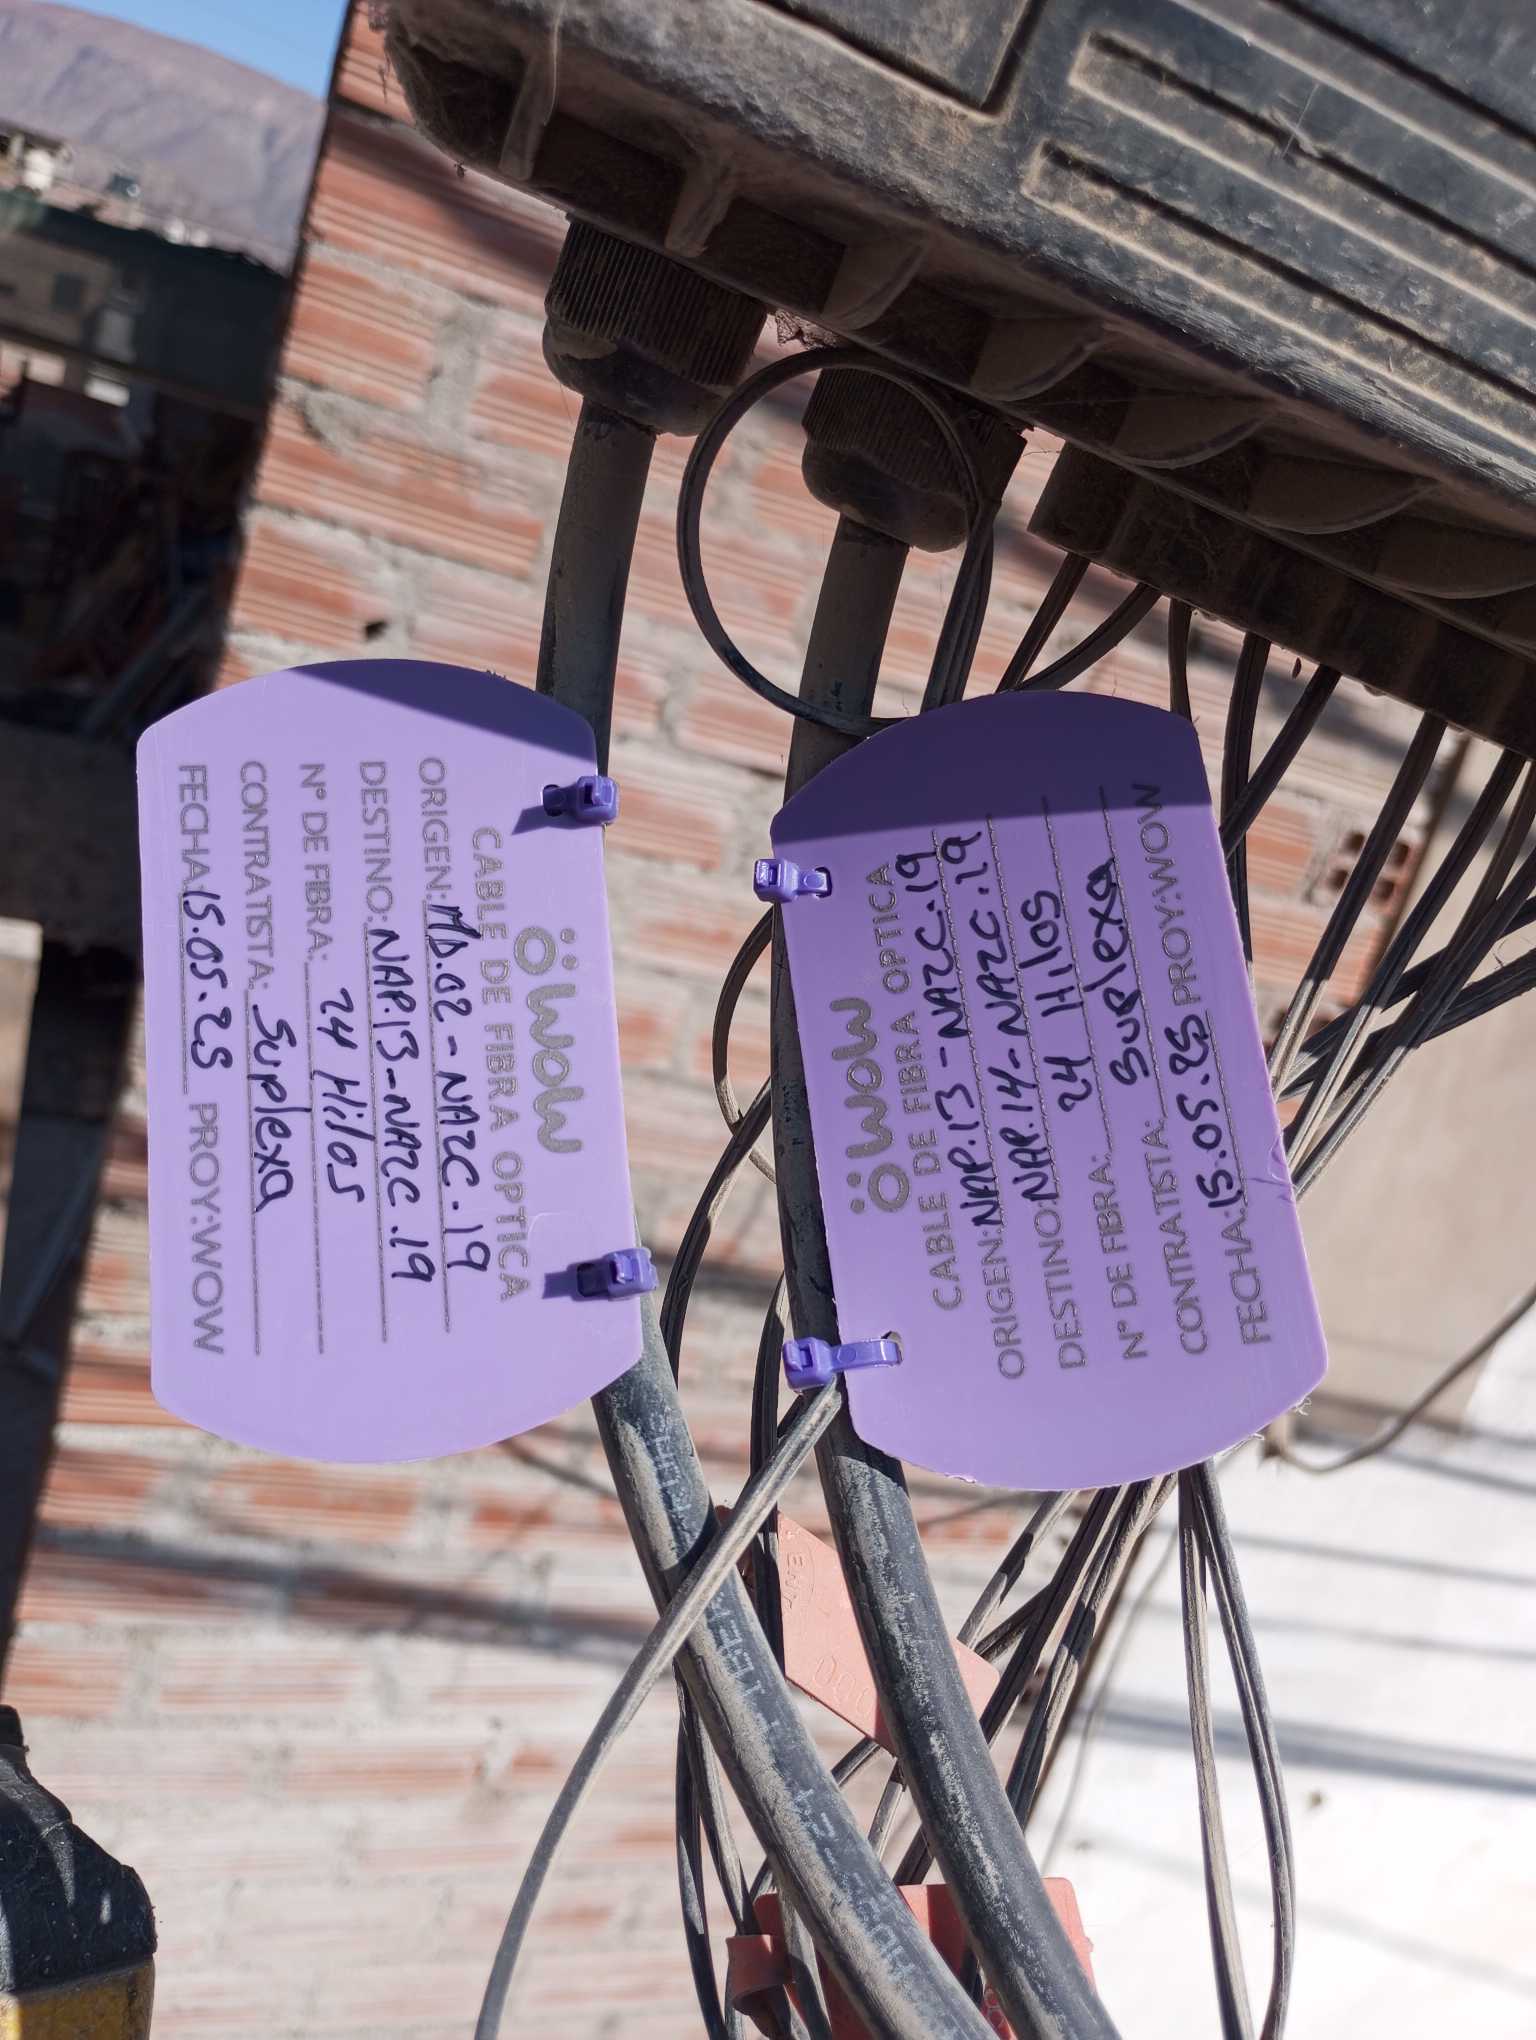 wow
CABLE DE FIBRA OPTICA
ORIGEN: MD.02 - NAZC.19
DESTINO: NAP.13 - NAZC.19
N° DE FIBRA: 24 Hilos
CONTRATISTA: Suplexa
FECHA: 15.05.25 PROY: WOW
wow
CABLE DE FIBRA OPTICA
ORIGEN: NAP.13 - NAZC.19
DESTINO: NAP.14 - NAZC.19
N° DE FIBRA: 24 Hilos
CONTRATISTA: Suplexa
FECHA: 15.05.25 PROY: WOW